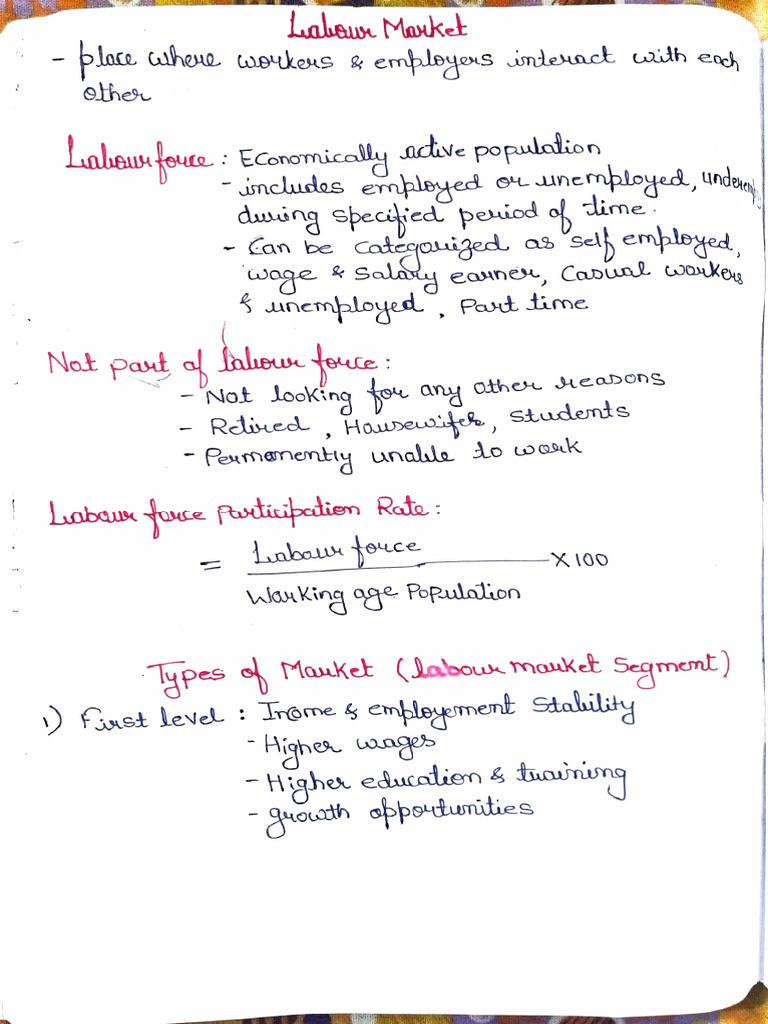 Labour Market
- place where workers & employers interact with each
other
Labour force : Economically active population
- includes employed or unemployed, underemp
during specified period of time.
- Can be categorized as self employed,
wage & salary earner, casual workers
& unemployed, Part time
Not part of labour force :
- Not looking for any other reasons
- Retired, Housewifes, Students
- Permanently unable to work
Labour force Participation Rate :
= Labour force X 100
Working age Population
Types of Market (labour market Segment)
1) First level : Income & employement Stability
- Higher wages
- Higher education & training
- growth opportunities